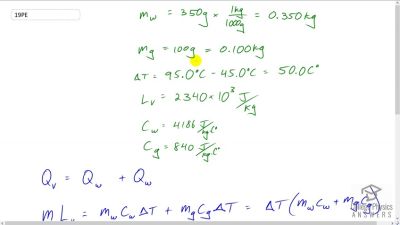 19PE
m_w = 350g × 1kg/1000g = 0.350kg
m_g = 100g = 0.100kg
ΔT = 95.0°C - 45.0°C = 50.0C°
L_v = 2340×10³ J/kg
C_w = 4186 J/kg·C°
C_g = 840 J/kg·C°
Q_v = Q_w + Q_w
m L_v = m_w C_w ΔT + m_g C_g ΔT = ΔT(m_w C_w + m_g C_g)
Physics
ANSWERS